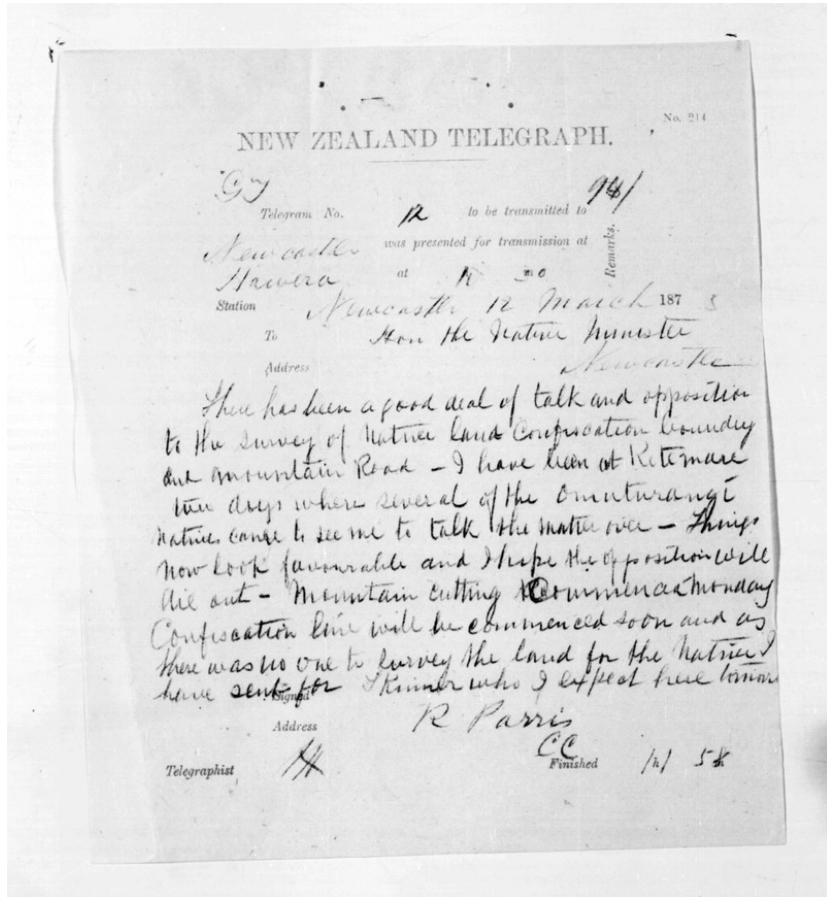 No. 214
NEW ZEALAND TELEGRAPH.
Telegram No. 12 to be transmitted to
Newcastle was presented for transmission at Remarks.
Hawera at
Station Newcastle 12 March 187
To Hon the Native Minister
Address Newcastle
There has been a good deal of talk and opposition
to the survey of Native land Confiscation boundry
and mountain Road – I have been at Ketemare
two days where several of the Omuturangi
Natives came to see me to talk the matter over – Things
now look favourable and I hope the opposition will
die out – Mountain cutting Commenced Monday
Confiscation line will be commenced soon and as
there was no one to survey the land for the Natives I
have sent for Skinner who I expect here
Signed
R Parris
Address
CC
Telegraphist Finished 58